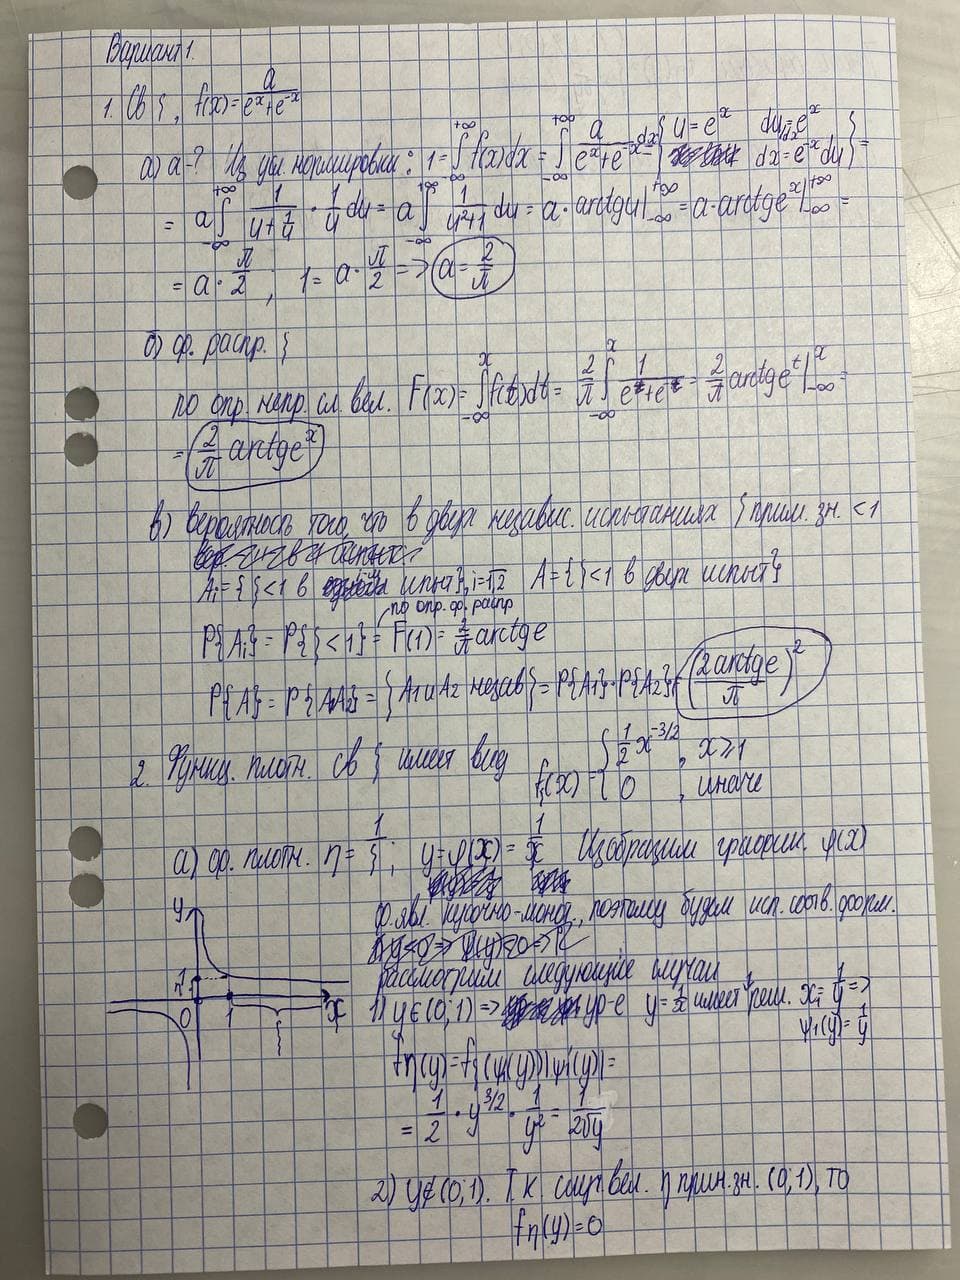 Вариант 1.
1. СВ ξ, f(x) = a/(eˣ+e⁻ˣ)
а) a-? Из усл. нормировки: 1 = ∫_{-∞}^{+∞} f(x)dx = ∫_{-∞}^{+∞} a/(eˣ+e⁻ˣ) dx = { u = eˣ du/dx = eˣ dx = e⁻ˣ du } =
= a ∫_{-∞}^{+∞} 1/(u+1/u) · 1/u du = a ∫_{-∞}^{+∞} 1/(u²+1) du = a · arctg u |_{-∞}^{+∞} = a · arctg eˣ |_{-∞}^{+∞} =
= a · π/2 ; 1 = a · π/2 => a = 2/π
б) ф. распр. ξ
по опр. непр. сл. вел. F(x) = ∫_{-∞}^{x} f(t)dt = 2/π ∫_{-∞}^{x} 1/(eᵗ+e⁻ᵗ) = 2/π arctg eᵗ |_{-∞}^{x} =
= 2/π arctg eˣ
в) вероятность того, что в двух независ. испытаниях ξ прим. зн. < 1
Aᵢ = {ξ < 1 в испыт}, i = 1,2 A = {ξ < 1 в двух испыт}
по опр. ф. распр
P{Aᵢ} = P{ξ < 1} = F(1) = 2/π arctg e
P{A} = P{A₁A₂} = {A₁ и A₂ незав} = P{A₁}·P{A₂} = (2arctg e/π)²
2. Функц. плотн. СВ ξ имеет вид f_ξ(x) = { 1/2 x^{-3/2}, x ≥ 1
0 , иначе
а) ф. плотн. η = 1/ξ ; y = φ(x) = 1/x Изобразим графич. φ(x)
ф. явл. кусочно-монот., поэтому будем исп. соотв. форм.
y
рассмотрим следующие случаи
1
η
0 1 x
ξ
1) y ∈ (0; 1) => ур-е y = 1/x имеет 1 реш. x₁ = 1/y =>
ψ₁(y) = 1/y
f_η(y) = f_ξ(ψ₁(y))|ψ₁'(y)| =
= 1/2 · y^{3/2} · 1/y² = 1/(2√y)
2) y ∉ (0; 1). Т.к вел. η прин. зн. (0; 1), то
f_η(y) = 0